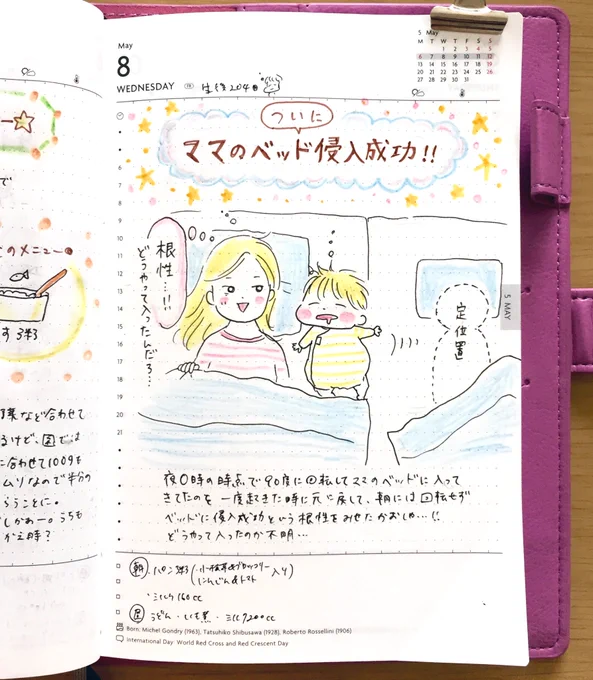 で
のメニュー
す 3杯
葉など合わせて
るけど、図では
に合わせて100gも
ムリなので半分の
らうことに。
しかぁー。うちも
かえ時?
May
8
WEDNESDAY
生後204日
5 May
M T W T F S S
1 2 3 4 5
6 7 8 9 10 11 12
13 14 15 16 17 18 19
20 21 22 23 24 25 26
27 28 29 30 31
ついに
ママのベッド侵入成功!!
根性…!!
どうやって入ったんだろ…
定位置
5 MAY
6
7
8
9
10
11
12
13
14
15
16
17
18
19
20
21
夜0時の時点で90度に回転してママのベッドに入って
きてたのを一度起きた時に元に戻して、朝には回転せず
ベッドに侵入成功という根性をみせたかおしゃ…!!
どうやって入ったのか不明…
朝・パン粥(・小松菜&ブロッコリー入り
にんじん&トマト
・ミルク160cc
昼・うどん・いも煮・ミルク200cc
Born: Michel Gondry (1963), Tatsuhiko Shibusawa (1928), Roberto Rossellini (1906)
International Day: World Red Cross and Red Crescent Day